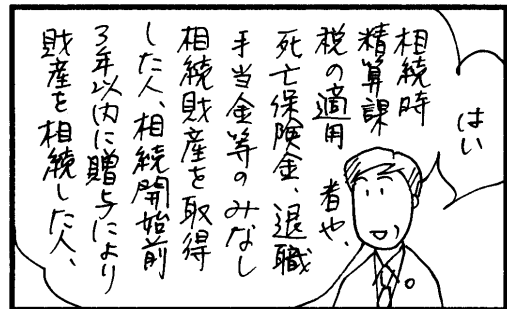 はい
相続時
精算課
税の適用者や、
死亡保険金、退職
手当金等のみなし
相続財産を取得
した人、相続開始前
3年以内に贈与により
財産を相続した人、